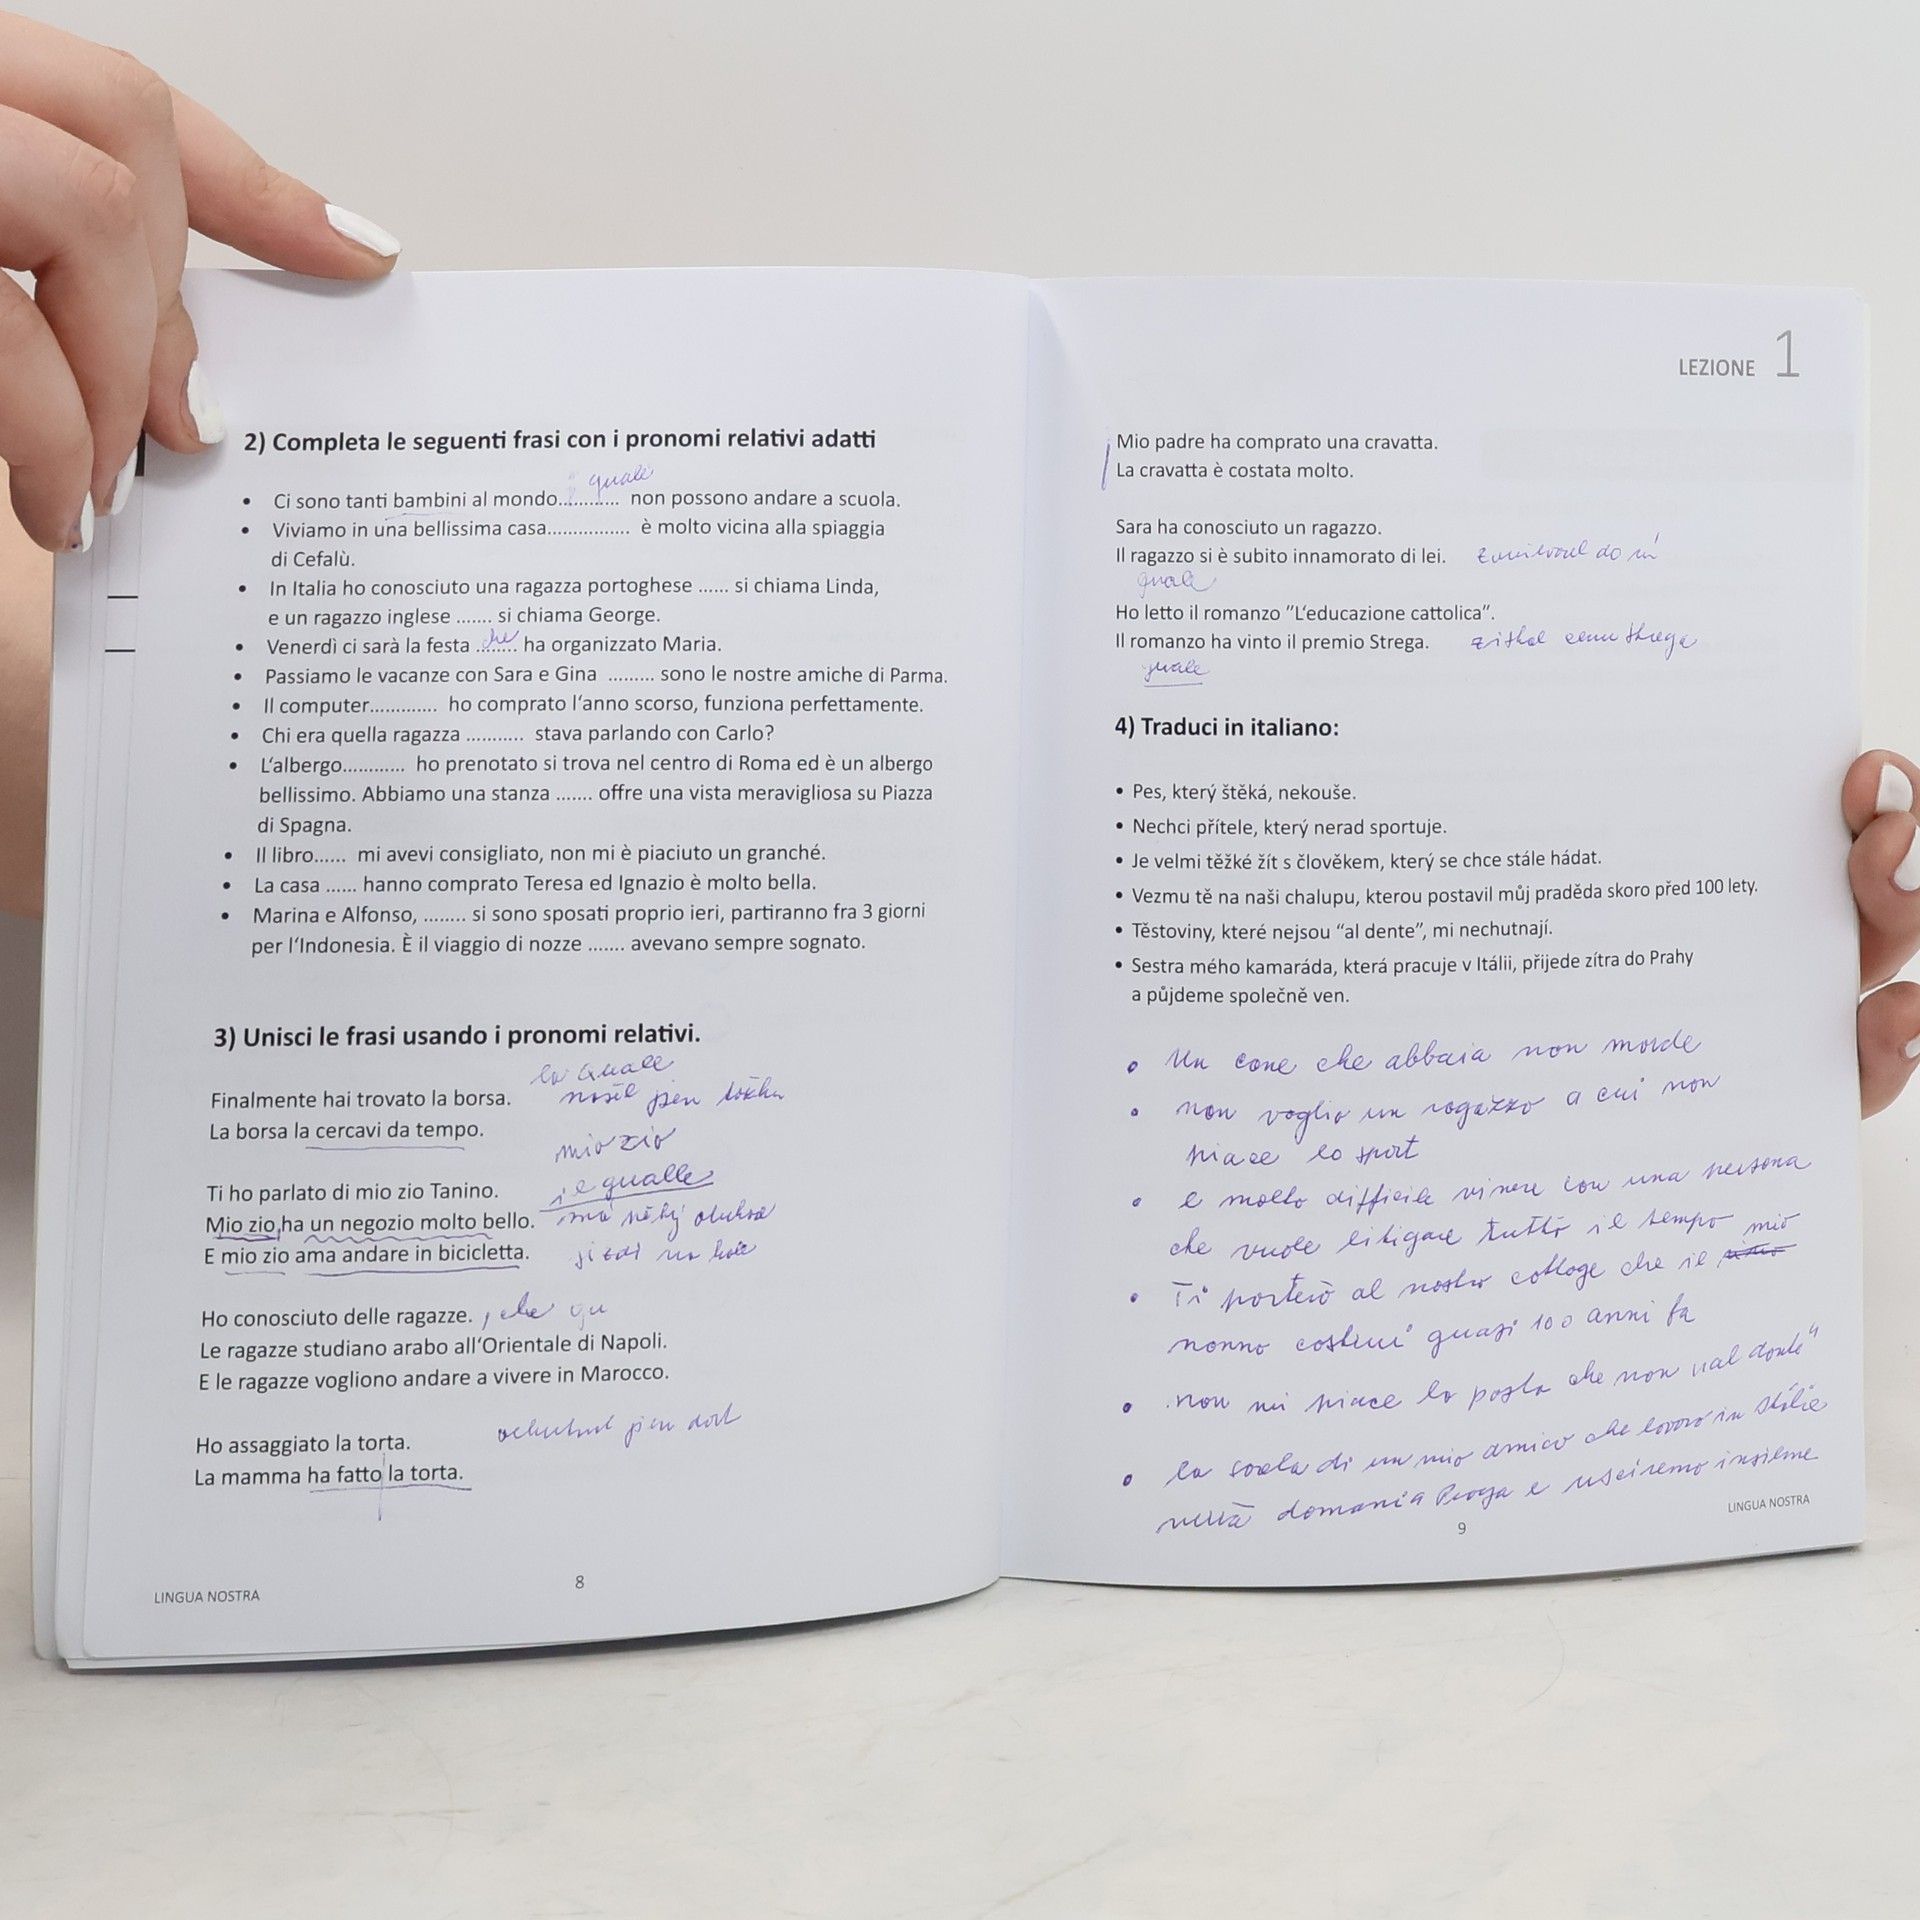 2) Completa le seguenti frasi con i pronomi relativi adatti
quale
• Ci sono tanti bambini al mondo............ non possono andare a scuola.
• Viviamo in una bellissima casa................ è molto vicina alla spiaggia
di Cefalù.
• In Italia ho conosciuto una ragazza portoghese ...... si chiama Linda,
e un ragazzo inglese ....... si chiama George.
• Venerdì ci sarà la festa che ha organizzato Maria.
• Passiamo le vacanze con Sara e Gina ......... sono le nostre amiche di Parma.
• Il computer............. ho comprato l'anno scorso, funziona perfettamente.
• Chi era quella ragazza ........... stava parlando con Carlo?
• L'albergo............ ho prenotato si trova nel centro di Roma ed è un albergo
bellissimo. Abbiamo una stanza ....... offre una vista meravigliosa su Piazza
di Spagna.
• Il libro...... mi avevi consigliato, non mi è piaciuto un granché.
• La casa ...... hanno comprato Teresa ed Ignazio è molto bella.
• Marina e Alfonso, ........ si sono sposati proprio ieri, partiranno fra 3 giorni
per l'Indonesia. È il viaggio di nozze ....... avevano sempre sognato.
3) Unisci le frasi usando i pronomi relativi.
la quale
Finalmente hai trovato la borsa.
La borsa la cercavi da tempo.
mio zio
Ti ho parlato di mio zio Tanino. il qualle
Mio zio,ha un negozio molto bello.
E mio zio ama andare in bicicletta.
Ho conosciuto delle ragazze. , che qu
Le ragazze studiano arabo all'Orientale di Napoli.
E le ragazze vogliono andare a vivere in Marocco.
Ho assaggiato la torta.
La mamma ha fatto la torta.
8
LINGUA NOSTRA
LEZIONE 1
Mio padre ha comprato una cravatta.
La cravatta è costata molto.
Sara ha conosciuto un ragazzo.
Il ragazzo si è subito innamorato di lei.
quale
Ho letto il romanzo "L'educazione cattolica".
Il romanzo ha vinto il premio Strega.
quale
4) Traduci in italiano:
• Pes, který štěká, nekouše.
• Nechci přítele, který nerad sportuje.
• Je velmi těžké žít s člověkem, který se chce stále hádat.
• Vezmu tě na naši chalupu, kterou postavil můj praděda skoro před 100 lety.
• Těstoviny, které nejsou "al dente", mi nechutnají.
• Sestra mého kamaráda, která pracuje v Itálii, přijede zítra do Prahy
a půjdeme společně ven.
• Un cane che abbaia non morde
• non voglio un ragazzo a cui non
piace lo sport
• e molto difficile vivere con una persona
che vuole litigare tutto il tempo
mio
• Ti porterò al nostro cottage che il
nonno costruì quasi 100 anni fa
• non mi piace la pasta che non "al dente"
• la sorela di un mio amico che lavora in Itálie
verrà domani a Praga e usciremo insieme
LINGUA NOSTRA
9